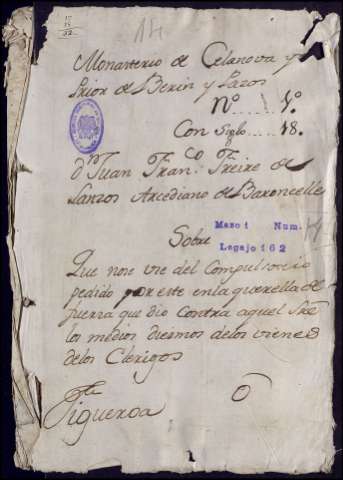 14
Monasterio de Celanova y
Prior de Berin y Pazos
Nº 1º
Con Siglo ..... 18.
dn Juan Franco Freire de
Lanzos Arcediano de Baroncelle
Sobre
Mazo 1 Num.
Legajo 162
Que no se vse del Compulsorio
pedido por este en la querella de
fuerza que dio contra aquel sre
los medios diesmos de los vienes
de los Clerigos
Figueroa